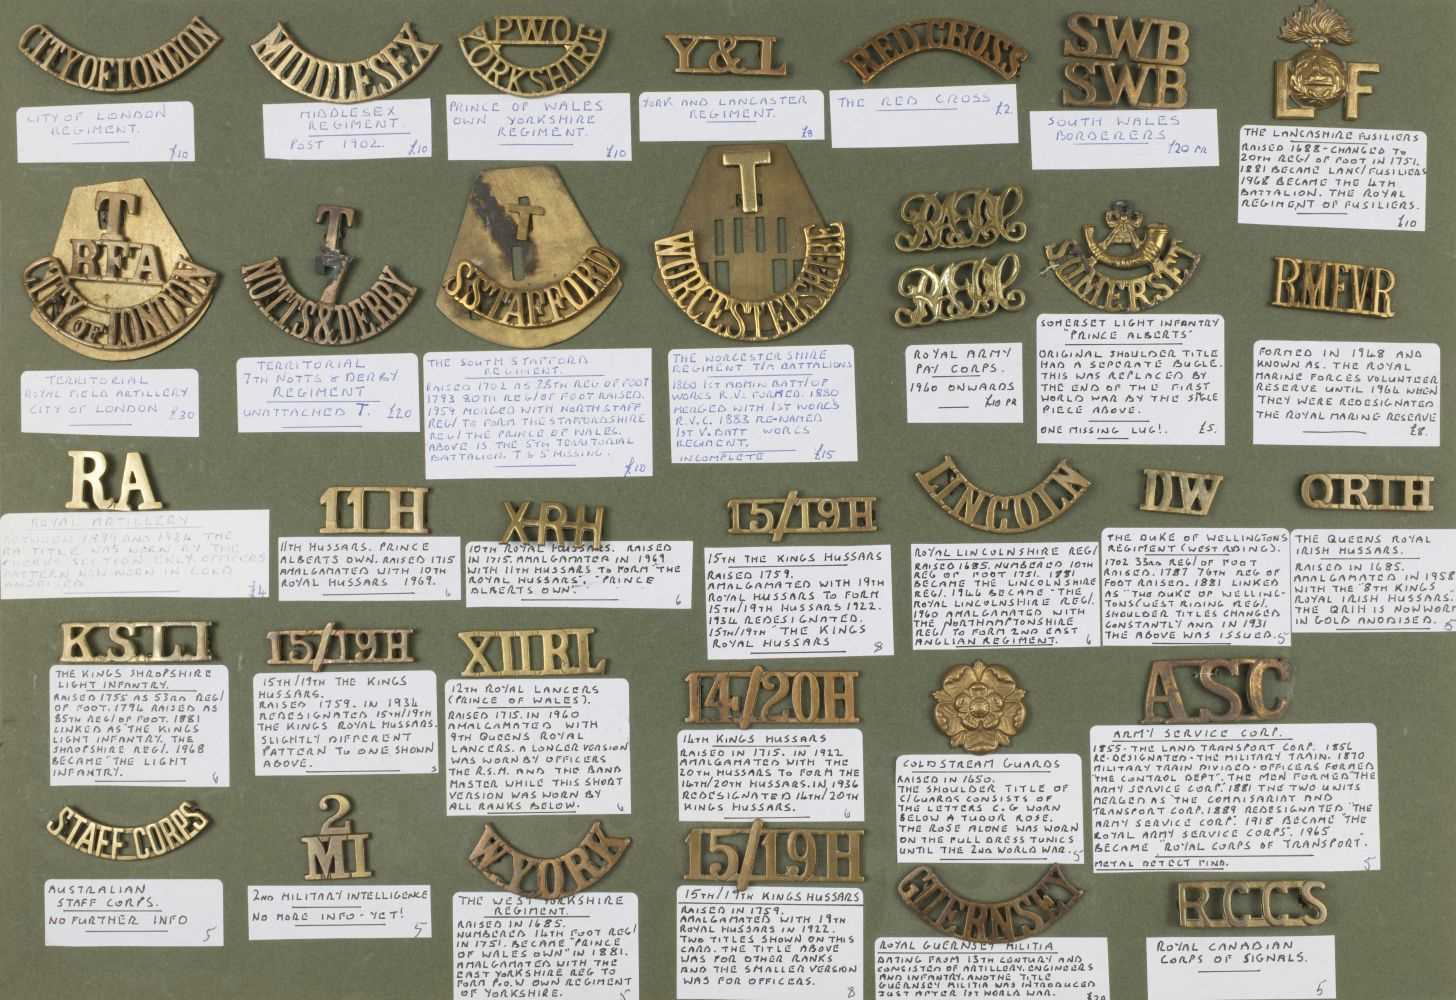 CITY OF LONDON
CITY OF LONDON
REGIMENT.
£10
MIDDLESEX
MIDDLESEX
REGIMENT.
POST 1902.
£10
PWO
YORKSHIRE
PRINCE OF WALES
OWN YORKSHIRE
REGIMENT.
£10
Y&L
YORK AND LANCASTER
REGIMENT.
£8
RED CROSS
THE RED CROSS
£2
SWB
SWB
SOUTH WALES
BORDERERS
£20 PR
LF
THE LANCASHIRE FUSILIERS
RAISED 1688-CHANGED TO
20TH REG/ OF FOOT IN 1751.
1881 BECAME LANC/FUSILIERS
1968 BECAME THE 4TH
BATTALION. THE ROYAL
REGIMENT OF FUSILIERS.
£10
T
RFA
CITY OF LONDON
TERRITORIAL
ROYAL FIELD ARTILLERY
CITY OF LONDON
£30
T
7
NOTTS & DERBY
TERRITORIAL
7TH NOTTS & DERBY
REGIMENT
UNATTACHED T.
£20
T
S.STAFFORD
THE SOUTH STAFFORD
REGIMENT.
RAISED 1702 AS 38TH REG OF FOOT
1793 80TH REG/ OF FOOT RAISED.
1959 MERGED WITH NORTH STAFF
REG/ TO FORM THE STAFFORDSHIRE
REG/ THE PRINCE OF WALES.
ABOVE IS THE 5TH TERRITORIAL
BATTALION. T & 5 MISSING.
£10
T
WORCESTERSHIRE
THE WORCESTERSHIRE
REGIMENT T/A BATTALIONS
1860 1ST ADMIN BATT/ OF
WORCS R.V. FORMED. 1880
MERGED WITH 1ST WORCS
R.V.C. 1883 RE-NAMED
1ST V. BATT WORCS
REGIMENT.
INCOMPLETE
£15
RAPC
RAPC
ROYAL ARMY
PAY CORPS.
1960 ONWARDS
£10 PR
SOMERSET
SOMERSET LIGHT INFANTRY
"PRINCE ALBERTS"
ORIGINAL SHOULDER TITLE
HAD A SEPERATE BUGLE.
THIS WAS REPLACED BY
THE END OF THE FIRST
WORLD WAR BY THE SINGLE
PIECE ABOVE.
ONE MISSING LUG!.
£5.
RMFVR
FORMED IN 1948 AND
KNOWN AS. THE ROYAL
MARINE FORCES VOLUNTEER
RESERVE UNTIL 1964 WHEN
THEY WERE REDESIGNATED
THE ROYAL MARINE RESERVE
£8.
RA
ROYAL ARTILLERY
BETWEEN 1894 AND 1924 THE
RA TITLE WAS WORN BY THE
SECTION. ONLY OFFICERS
PATTERN NOW WORN
ANODISED.
£4
11H
11TH HUSSARS. PRINCE
ALBERTS OWN. RAISED 1715
AMALGAMATED WITH 10TH
ROYAL HUSSARS 1969.
6
XRH
10TH ROYAL HUSSARS. RAISED
IN 1715. AMALGAMATED IN 1969
WITH 11TH HUSSARS TO FORM "THE
ROYAL HUSSARS". "PRINCE
ALBERTS OWN".
6
15/19H
15TH THE KINGS HUSSARS
RAISED 1759.
AMALGAMATED WITH 19TH
ROYAL HUSSARS TO FORM
15TH/19TH HUSSARS 1922.
1934 REDESIGNATED.
15TH/19TH "THE KINGS
ROYAL HUSSARS
8
LINCOLN
ROYAL LINCOLNSHIRE REG/
RAISED 1685. NUMBERED 10TH
REG OF FOOT 1751. 1881
BECAME THE LINCOLNSHIRE
REG/. 1946 BECAME "THE
ROYAL LINCOLNSHIRE REG/.
1960 AMALGAMATED WITH
THE NORTHAMPTONSHIRE
REG/ TO FORM 2ND EAST
ANGLIAN REGIMENT.
6
DW
THE DUKE OF WELLINGTONS
REGIMENT (WEST RIDING).
1702 33RD REG/ OF FOOT
RAISED. 1787 76TH REG OF
FOOT RAISED. 1881 LINKED
AS "THE DUKE OF WELLING-
TONS (WEST RIDING REG/.
SHOULDER TITLES CHANGED
CONSTANTLY AND IN 1931
THE ABOVE WAS ISSUED.
5
QRIH
THE QUEENS ROYAL
IRISH HUSSARS.
RAISED IN 1685.
AMALGAMATED IN 1958
WITH THE "8TH KINGS
ROYAL IRISH HUSSARS.
THE QRIH IS NOW WORN
IN GOLD ANODISED.
5
KSLI
THE KINGS SHROPSHIRE
LIGHT INFANTRY.
RAISED 1755 AS 53RD REG/
OF FOOT. 1794 RAISED AS
85TH REG/ OF FOOT. 1881
LINKED AS "THE KINGS
LIGHT INFANTRY. THE
SHROPSHIRE REG/. 1968
BECAME "THE LIGHT
INFANTRY.
6
15/19H
15TH/19TH THE KINGS
HUSSARS.
RAISED 1759. IN 1934
REDESIGNATED 15TH/19TH
THE KINGS ROYAL HUSSARS.
SLIGHTLY DIFFERENT
PATTERN TO ONE SHOWN
ABOVE.
5
XIIRL
12TH ROYAL LANCERS
(PRINCE OF WALES).
RAISED 1715. IN 1960
AMALGAMATED WITH
9TH QUEENS ROYAL
LANCERS. A LONGER VERSION
WAS WORN BY OFFICERS
THE R.S.M. AND THE BAND
MASTER WHILE THIS SHORT
VERSION WAS WORN BY
ALL RANKS BELOW.
6
14/20H
14TH KINGS HUSSARS
RAISED IN 1715. IN 1922
AMALGAMATED WITH THE
20TH HUSSARS TO FORM THE
14TH/20TH HUSSARS. IN 1936
REDESIGNATED 14TH/20TH
KINGS HUSSARS.
6
COLDSTREAM GUARDS
RAISED IN 1650.
THE SHOULDER TITLE OF
C/GUARDS CONSISTS OF
THE LETTERS C.G WORN
BELOW A TUDOR ROSE.
THE ROSE ALONE WAS WORN
ON THE FULL DRESS TUNICS
UNTIL THE 2ND WORLD WAR.
5
ASC
ARMY SERVICE CORP.
1855- THE LAND TRANSPORT CORP. 1856
RE-DESIGNATED - THE MILITARY TRAIN. 1870
MILITARY TRAIN DIVIDED - OFFICERS FORMED
"THE CONTROL DEPT". THE MEN FORMED "THE
ARMY SERVICE CORP". 1881 THE TWO UNITS
MERGED AS "THE COMMISARIAT AND
TRANSPORT CORP. 1889 REDESIGNATED "THE
ARMY SERVICE CORP". 1918 BECAME "THE
ROYAL ARMY SERVICE CORPS". 1965
BECAME "ROYAL CORPS OF TRANSPORT.
METAL DETECT FIND.
5
STAFF CORPS
AUSTRALIAN
STAFF CORPS.
NO FURTHER INFO
5
2
MI
2ND MILITARY INTELLIGENCE
NO MORE INFO - YET!
5
W.YORK
THE WEST YORKSHIRE
REGIMENT.
RAISED IN 1685.
NUMBERED 14TH FOOT REG/
IN 1751. BECAME "PRINCE
OF WALES OWN" IN 1881.
AMALGAMATED WITH THE
EAST YORKSHIRE REG TO
FORM P.O.W OWN REGIMENT
OF YORKSHIRE.
5
15/19H
15TH/19TH KINGS HUSSARS
RAISED IN 1759.
AMALGAMATED WITH 19TH
ROYAL HUSSARS IN 1922.
TWO TITLES SHOWN ON THIS
CARD. THE TITLE ABOVE
WAS FOR OTHER RANKS
AND THE SMALLER VERSION
WAS FOR OFFICERS.
8
GUERNSEY
ROYAL GUERNSEY MILITIA
DATING FROM 13TH CENTURY AND
CONSISTED OF ARTILLERY, ENGINEERS
AND INFANTRY. AND THE TITLE
GUERNSEY MILITIA WAS INTRODUCED
JUST AFTER 1ST WORLD WAR.
£20
RCCS
ROYAL CANADIAN
CORPS OF SIGNALS.
5